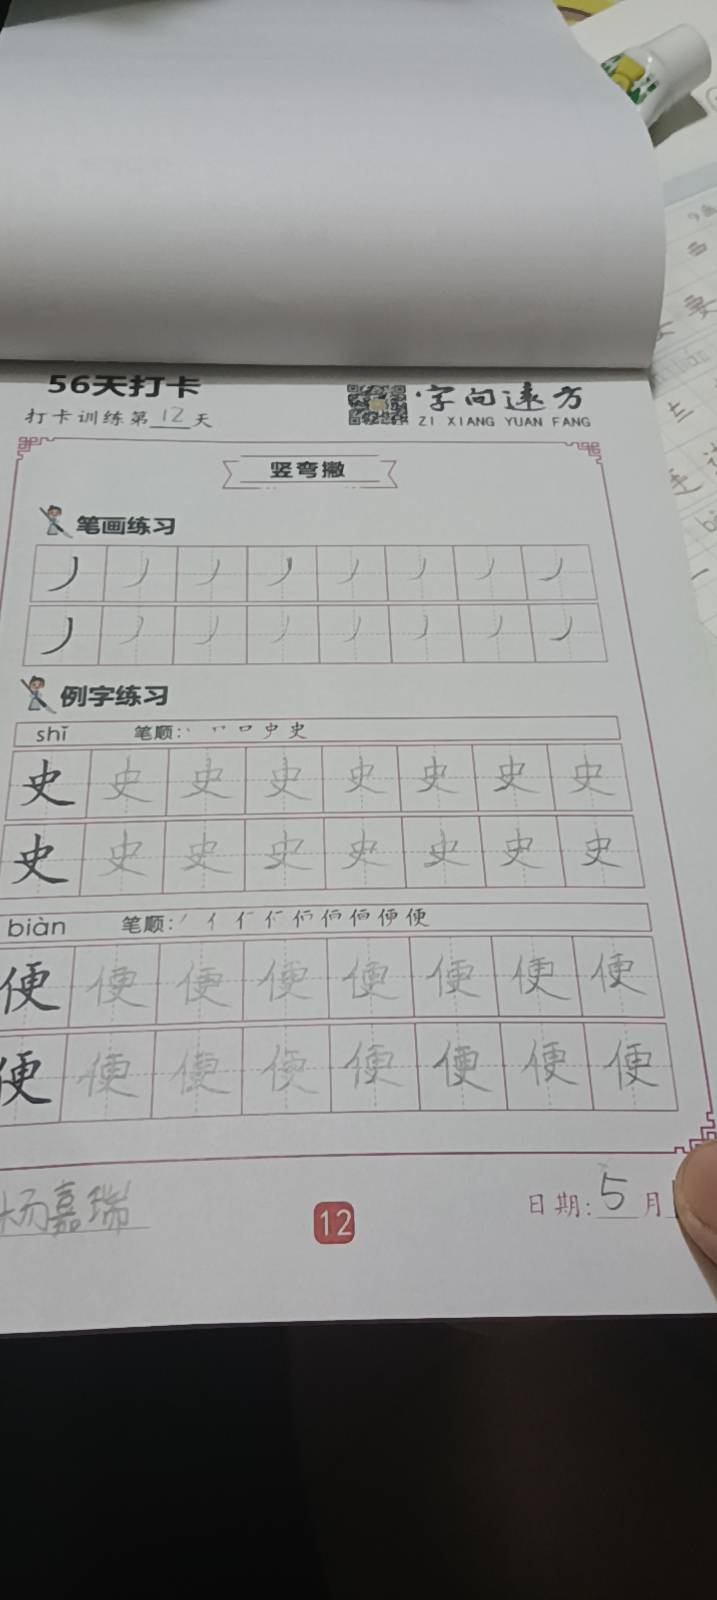 56天打卡
打卡训练第12天
字向远方
ZI XIANG YUAN FANG
竖弯撇
笔画练习
丿 丿 丿 丿 丿 丿 丿 丿
丿 丿 丿 丿 丿 丿 丿 丿
例字练习
shǐ 笔顺: 史
史 史 史 史 史 史 史 史
史 史 史 史 史 史 史 史
biàn 笔顺: 便
便 便 便 便 便 便 便 便
便 便 便 便 便 便 便 便
杨嘉瑞
12
日期:5月